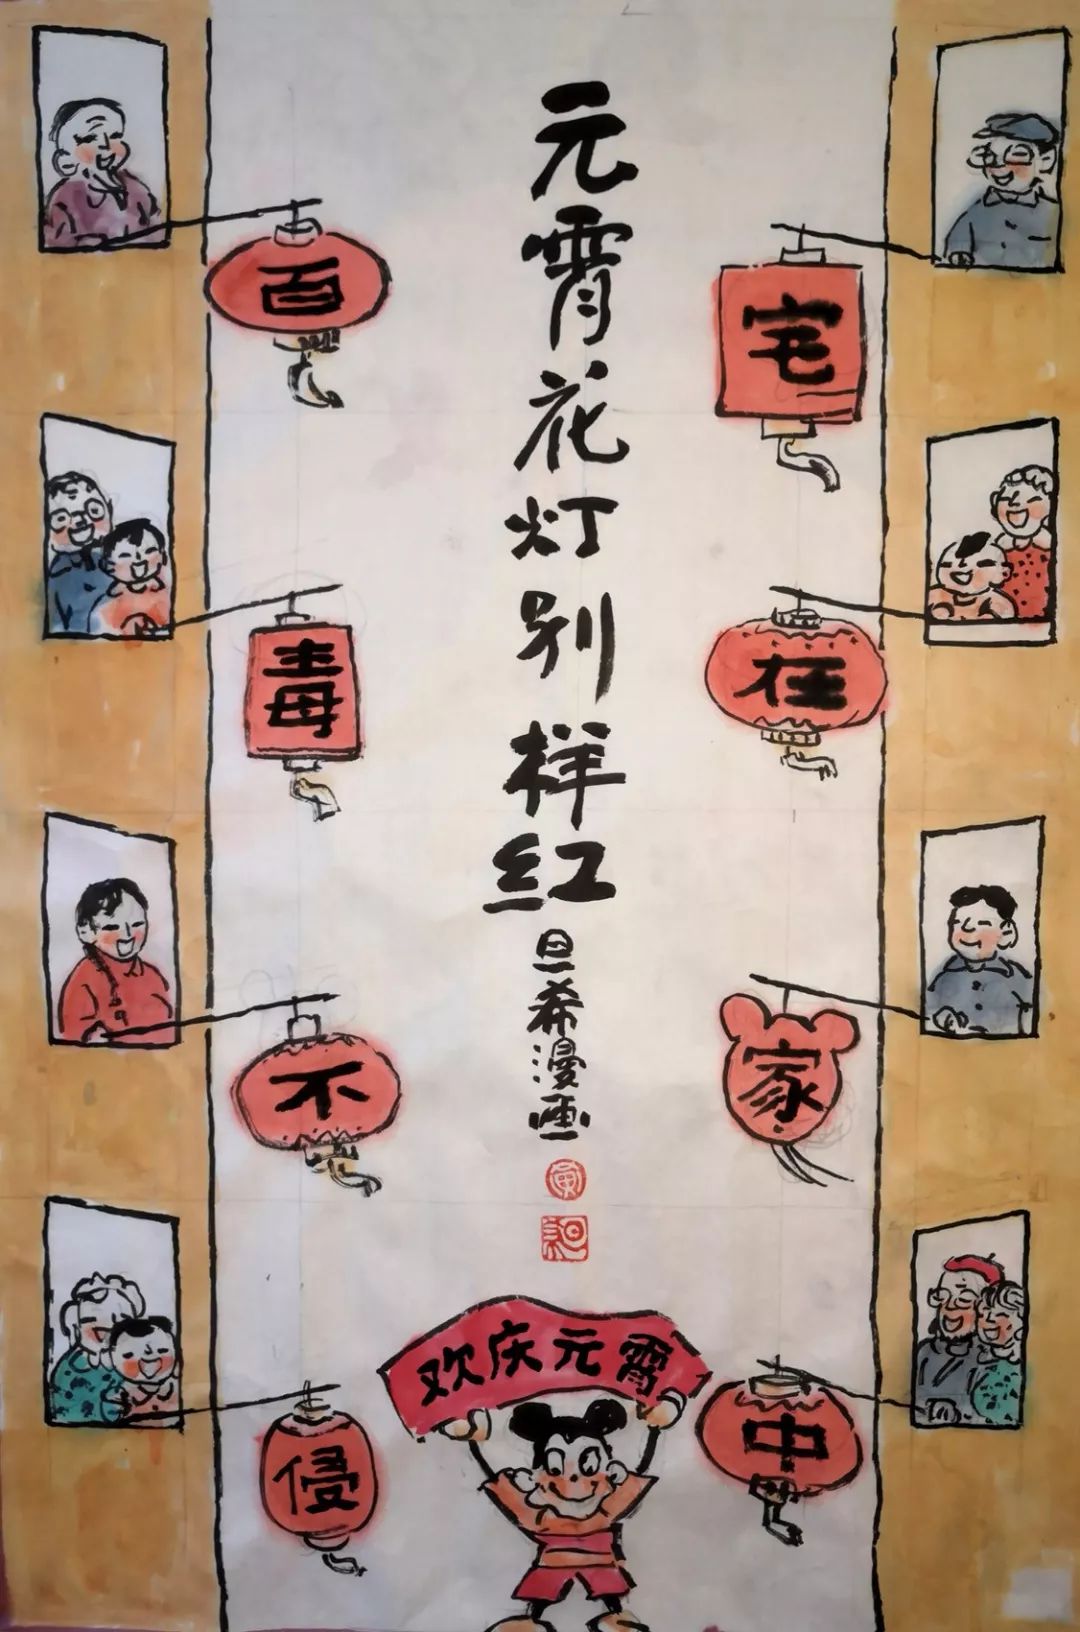 元宵花灯别样红
旦希漫画
宅
在
家
中
百
毒
不
侵
欢庆元宵